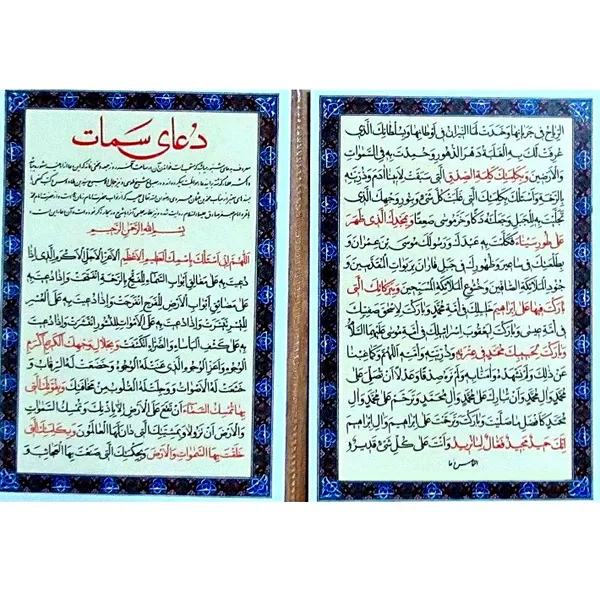 دعای سمات
بسم الله الرحمن الرحیم
اَللّهُمَّ اِنّی اَسْأَلُكَ بِاسْمِكَ الْعَظیمِ الْاَعْظَمِ الْاَعَزِّ الْاَجَلِّ الْاَكْرَمِ الَّذی اِذا
دُعیتَ بِهِ عَلی مَغالِقِ اَبْوابِ السَّماءِ لِلْفَتْحِ بِالرَّحْمَةِ انْفَتَحَتْ وَاِذا دُعیتَ بِهِ
عَلی مَضائِقِ اَبْوابِ الْاَرْضِ لِلْفَرَجِ انْفَرَجَتْ وَاِذا دُعیتَ بِهِ عَلَی الْعُسْرِ
لِلْیُسْرِ تَیَسَّرَتْ وَاِذا دُعیتَ بِهِ عَلَی الْاَمْواتِ لِلنُّشُورِ انْتَشَرَتْ وَاِذا دُعیتَ
بِهِ عَلی كَشْفِ الْبَأْساءِ وَالضَّرّاءِ انْكَشَفَتْ وَبِجَلالِ وَجْهِكَ الْكَریمِ اَكْرَمِ
الْوُجُوهِ وَاَعَزِّ الْوُجُوهِ الَّذی عَنَتْ لَهُ الْوُجُوهُ وَخَضَعَتْ لَهُ الرِّقابُ وَ
خَشَعَتْ لَهُ الْاَصْواتُ وَوَجِلَتْ لَهُ الْقُلُوبُ مِنْ مَخافَتِكَ وَبِقُوَّتِكَ الَّتی
بِها تُمْسِكُ السَّماءَ اَنْ تَقَعَ عَلَی الْاَرْضِ اِلّا بِاِذْنِكَ وَتُمْسِكُ السَّمٰواتِ
وَالْاَرْضَ اَنْ تَزُولا وَبِمَشِیَّتِكَ الَّتی دانَ لَهَا الْعالَمُونَ وَبِكَلِمَتِكَ الَّتی
خَلَقْتَ بِهَا السَّمٰواتِ وَالْاَرْضَ وَبِحِكْمَتِكَ الَّتی صَنَعْتَ بِهَا الْعَجائِبَ وَ
الرِّیاحُ فی جَرَیانِها وَخَمَدَتْ لَهَا النّیرانُ فی اَوْطانِها وَبِسُلْطانِكَ الَّذی
عُرِفَتْ لَكَ بِهِ الْغَلَبَةُ دَهْرَ الدُّهُورِ وَحُمِدْتَ بِهِ فِی السَّمٰواتِ
وَالْاَرَضینَ وَبِكَلِمَتِكَ كَلِمَةِ الصِّدْقِ الَّتی سَبَقَتْ لِاَبینا آدَمَ وَذُرِّیَّتِهِ
بِالرَّحْمَةِ وَاَسْأَلُكَ بِكَلِمَتِكَ الَّتی غَلَبَتْ كُلَّ شَیْءٍ وَبِنُورِ وَجْهِكَ الَّذی
تَجَلَّیْتَ بِهِ لِلْجَبَلِ فَجَعَلْتَهُ دَكًّا وَخَرَّ مُوسی صَعِقًا وَبِمَجْدِكَ الَّذی ظَهَرَ
عَلی طُورِ سَیْناءَ فَكَلَّمْتَ بِهِ عَبْدَكَ وَرَسُولَكَ مُوسَی بْنَ عِمْرانَ وَ
بِطَلْعَتِكَ فی ساعیرَ وَظُهُورِكَ فی جَبَلِ فارانَ بِرَبَواتِ الْمُقَدَّسینَ وَ
جُنُودِ الْمَلائِكَةِ الصّافّینَ وَخُشُوعِ الْمَلائِكَةِ الْمُسَبِّحینَ وَبِبَرَكاتِكَ الَّتی
بارَكْتَ فیها عَلی اِبْراهیمَ خَلیلِكَ فی اُمَّةِ مُحَمَّدٍ وَبارَكْتَ لِاِسْحقَ صَفِیِّكَ
فی اُمَّةِ عیسی وَبارَكْتَ لِیَعْقُوبَ اِسْرائیلِكَ فی اُمَّةِ مُوسی عَلَیْهِمَا السَّلامُ
وَبارَكْتَ لِحَبیبِكَ مُحَمَّدٍ فی عِتْرَتِهِ وَذُرِّیَّتِهِ وَاُمَّتِهِ اَللّهُمَّ وَكَما غِبْنا
عَنْ ذلِكَ وَلَمْ نَشْهَدْهُ وَآمَنّا بِهِ وَلَمْ نَرَهُ صِدْقًا وَعَدْلًا اَنْ تُصَلِّیَ عَلی
مُحَمَّدٍ وَآلِ مُحَمَّدٍ وَاَنْ تُبارِكَ عَلی مُحَمَّدٍ وَآلِ مُحَمَّدٍ وَتَرَحَّمَ عَلی مُحَمَّدٍ وَآلِ
مُحَمَّدٍ كَاَفْضَلِ ما صَلَّیْتَ وَبارَكْتَ وَتَرَحَّمْتَ عَلی اِبْراهیمَ وَآلِ اِبْراهیمَ
اِنَّكَ حَمیدٌ مَجیدٌ فَعّالٌ لِما تُریدُ وَاَنْتَ عَلی كُلِّ شَیْءٍ قَدیرٌ